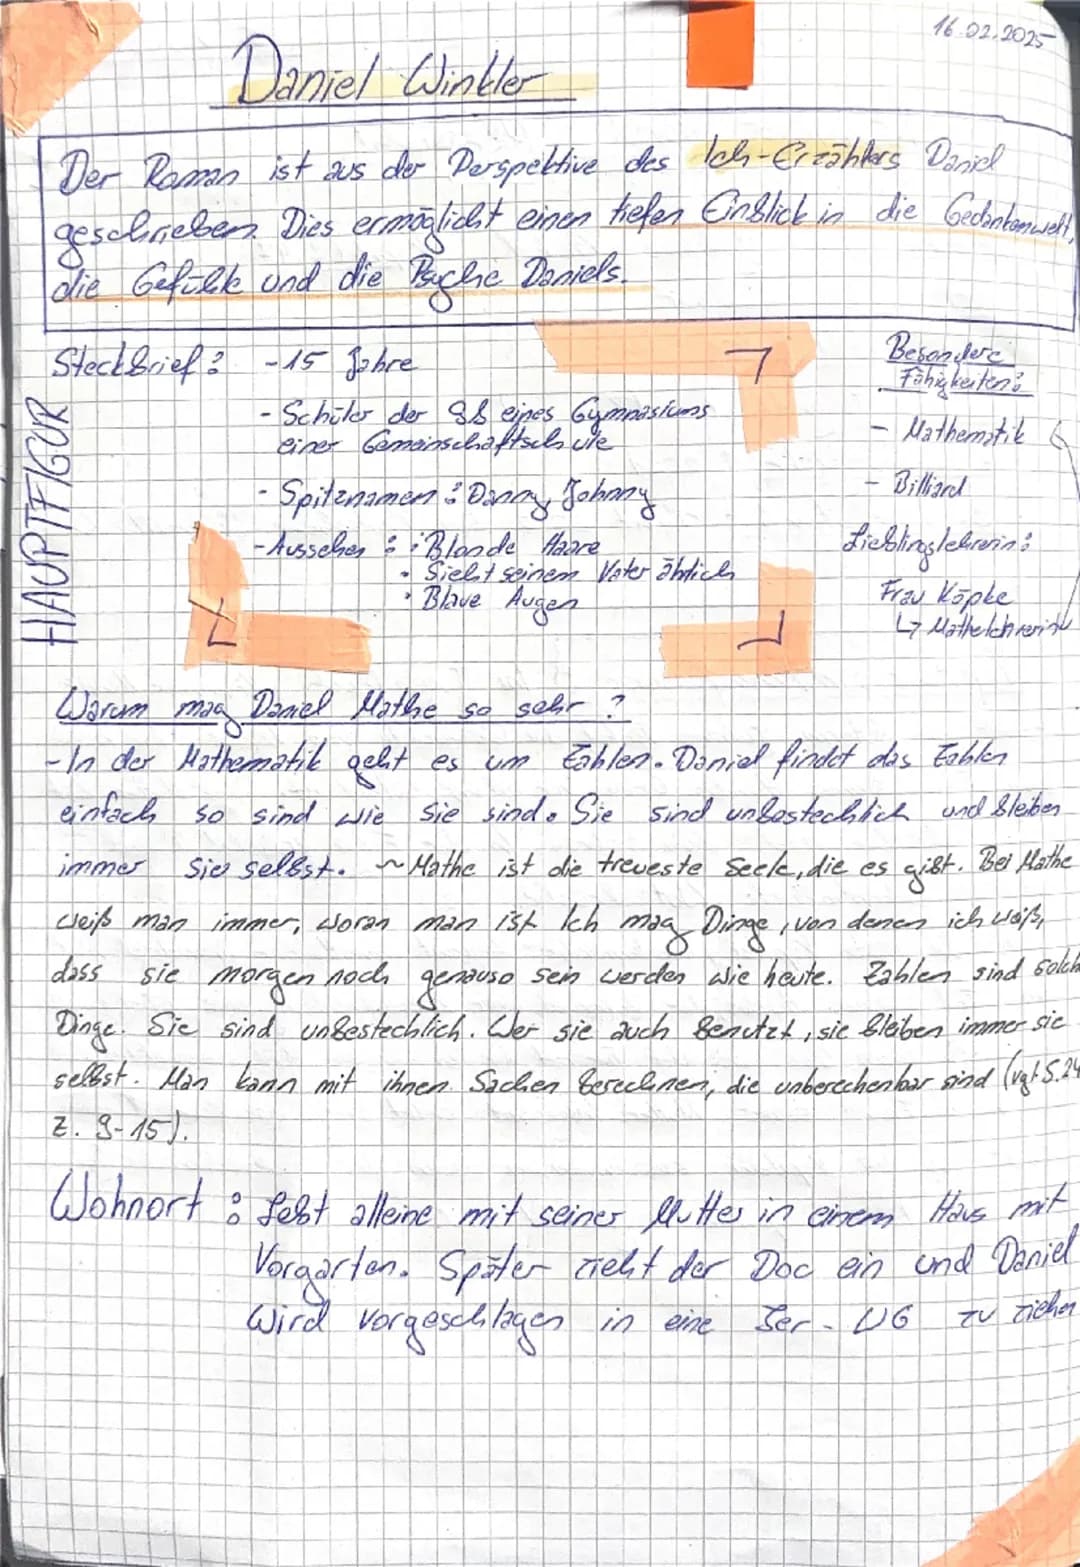 16.02.2025
Daniel Winkler
Der Roman ist aus der Perspektive des Ich-Erzählers Daniel
geschrieben. Dies ermöglicht einen tiefen Einblick in die Gedankenwelt,
die Gefühle und die Psyche Daniels.
HAUPTFIGUR
Steckbrief: - 15 Jahre
- Schüler der 8B eines Gymnasiums
einer Gemeinschaftsschule
- Spitznamen: Danny, Johnny
- Aussehen: • Blonde Haare
• Sieht seinem Vater ähnlich
• Blaue Augen
Besondere
Fähigkeiten:
- Mathematik
- Billiard
Lieblingslehrerin:
Frau Köpke
↳ Mathelehrerin
Warum mag Daniel Mathe so sehr?
- In der Mathematik geht es um Zahlen. Daniel findet das Zahlen
einfach so sind wie sie sind. Sie sind unbestechlich und bleiben
immer sie selbst. ~ Mathe ist die treueste Seele, die es gibt. Bei Mathe
weiß man immer, woran man ist Ich mag Dinge, von denen ich weiß,
dass sie morgen noch genauso sein werden wie heute. Zahlen sind solch
Dinge. Sie sind unbestechlich. Wer sie auch benutzt, sie bleiben immer sie
selbst. Man kann mit ihnen Sachen berechnen, die unberechenbar sind (vgl. S.24
Z. 9-15).
Wohnort: Lebt alleine mit seiner Mutter in einem Haus mit
Vorgarten. Später zieht der Doc ein und Daniel
wird vorgeschlagen in eine 3er-WG zu ziehen